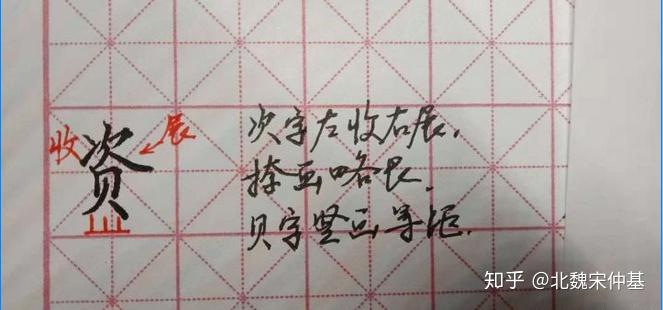 收 资 展
次字左收右展,
捺画略长,
贝字竖画等距.
知乎 @北魏宋仲基